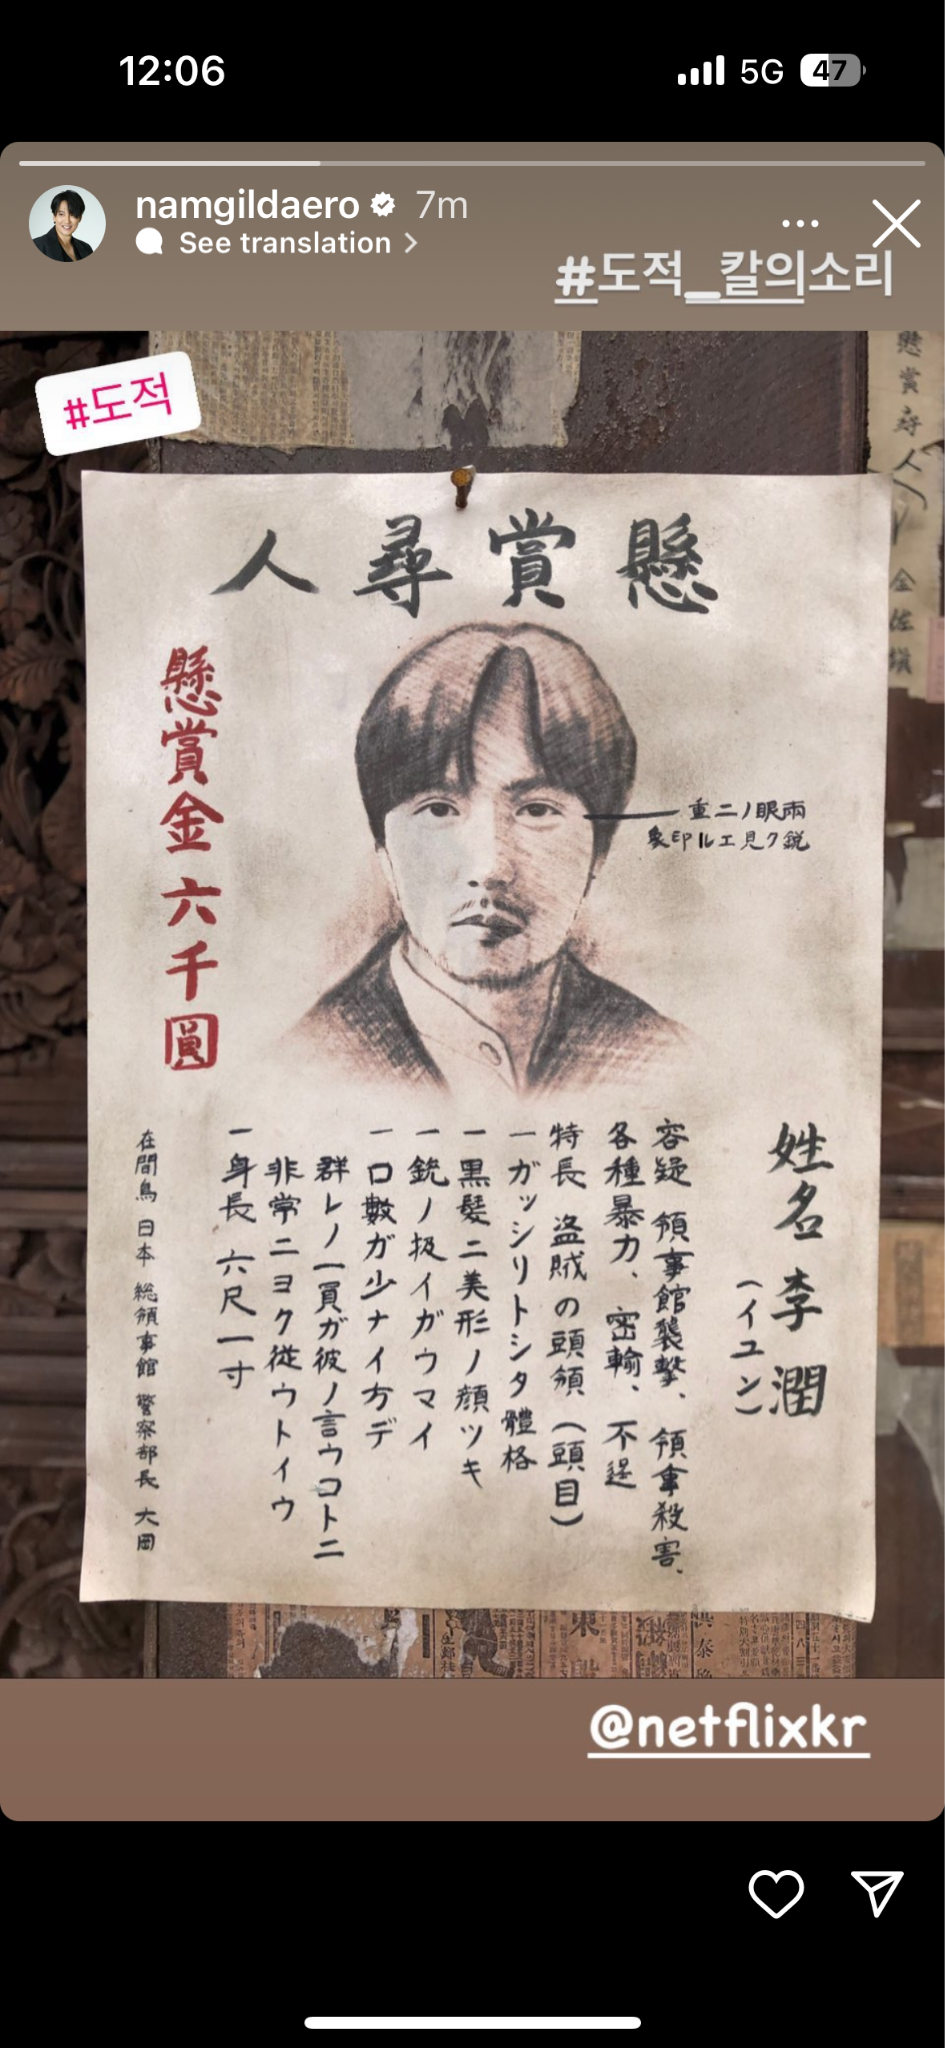 12:06
5G
47
namgildaero
7m
See translation
#도적_칼의소리
#도적
懸賞尋人
人尋賞懸
懸賞金六千圓
重二ノ眼兩
象印ルエ見ク鋭
姓名 李潤
(イユン)
容疑 領事館襲撃、領事殺害、
各種暴力、密輸、不逞
特長 盗賊の頭領(頭目)
一ガッシリトシタ體格
一黒髪ニ美形ノ顔ツキ
一銃ノ扱イガウマイ
一口數ガ少ナイ方デ
群レノ一員ガ彼ノ言ウコトニ
非常ニヨク從ウトイウ
一身長 六尺一寸
在間島 日本 総領事館 警察部長 大岡
@netflixkr